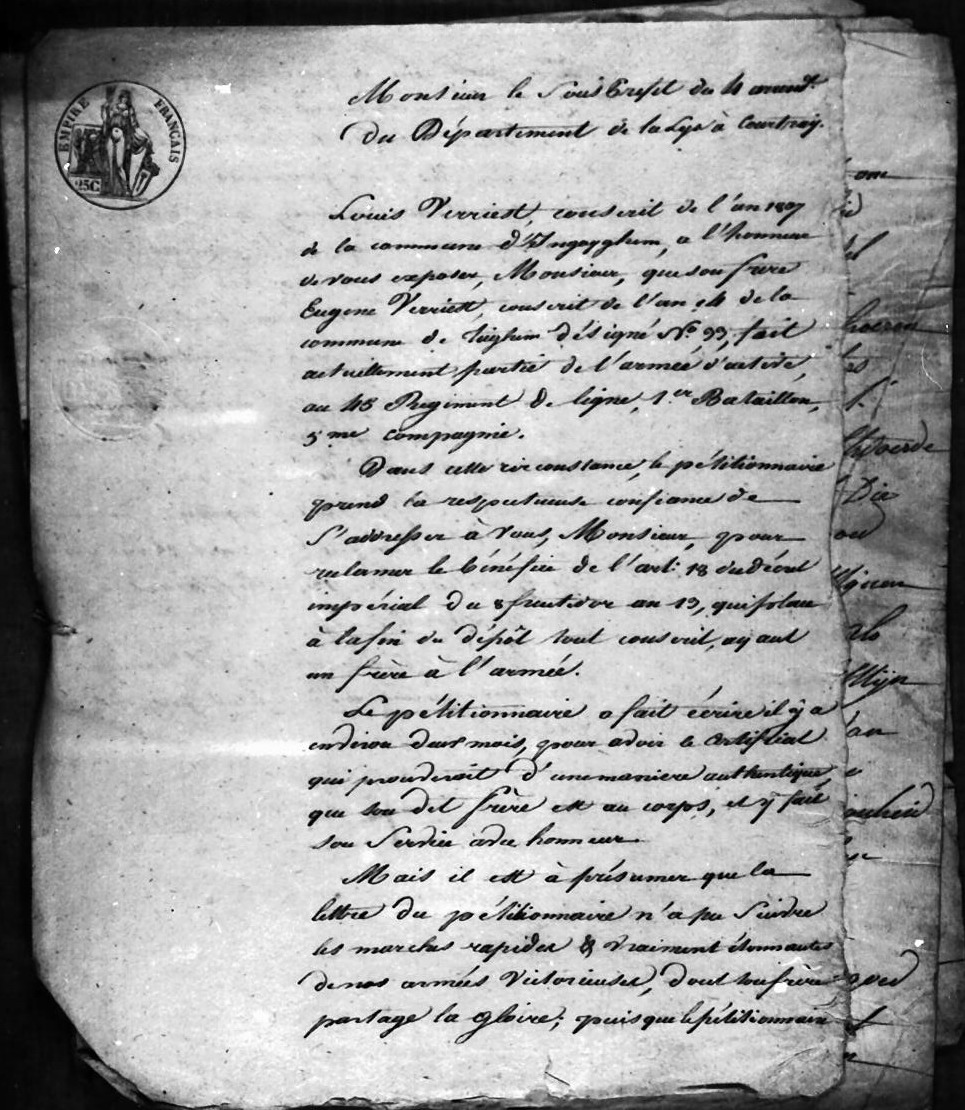 EMPIRE FRANÇAIS
25C
Monsieur le Sous Prefet du 4 arrondt.
du Département de la Lys à Courtray.
Louis Verriest, conscrit de l'an 1807
de la commune d'Ingoyghem, a l'honneur
de vous exposer, Monsieur, que son frère
Eugene Verriest, conscrit de l'an 14 de la
commune de Tieghem désigné No. 99, fait
actuellement partie de l'armée d'active,
au 45 Regiment de ligne, 1.er Bataillon,
5 me compagnie.
Dans cette circonstance, le pétitionnaire
prend la respectueuse confiance de
s'addresser à Vous, Monsieur, pour
reclamer le bénéfice de l'art: 18 du décret
impérial du 8 fructidor an 13, qui place
à la fin du dépôt tout conscrit, ayant
un frère à l'armée.
Le pétitionnaire a fait écrire il y a
environ deux mois, pour avoir le Certificat
qui prouveroit d'une maniere authentique,
que son dit frère est au corps, et y fait
son Service avec honneur.
Mais il est à présumer que la
lettre du pétitionnaire n'a pu Suivre
les marches rapides & vraiment étonnantes
de nos armées Victorieuses, dont son frère
partage la gloire; puisque le pétitionnaire